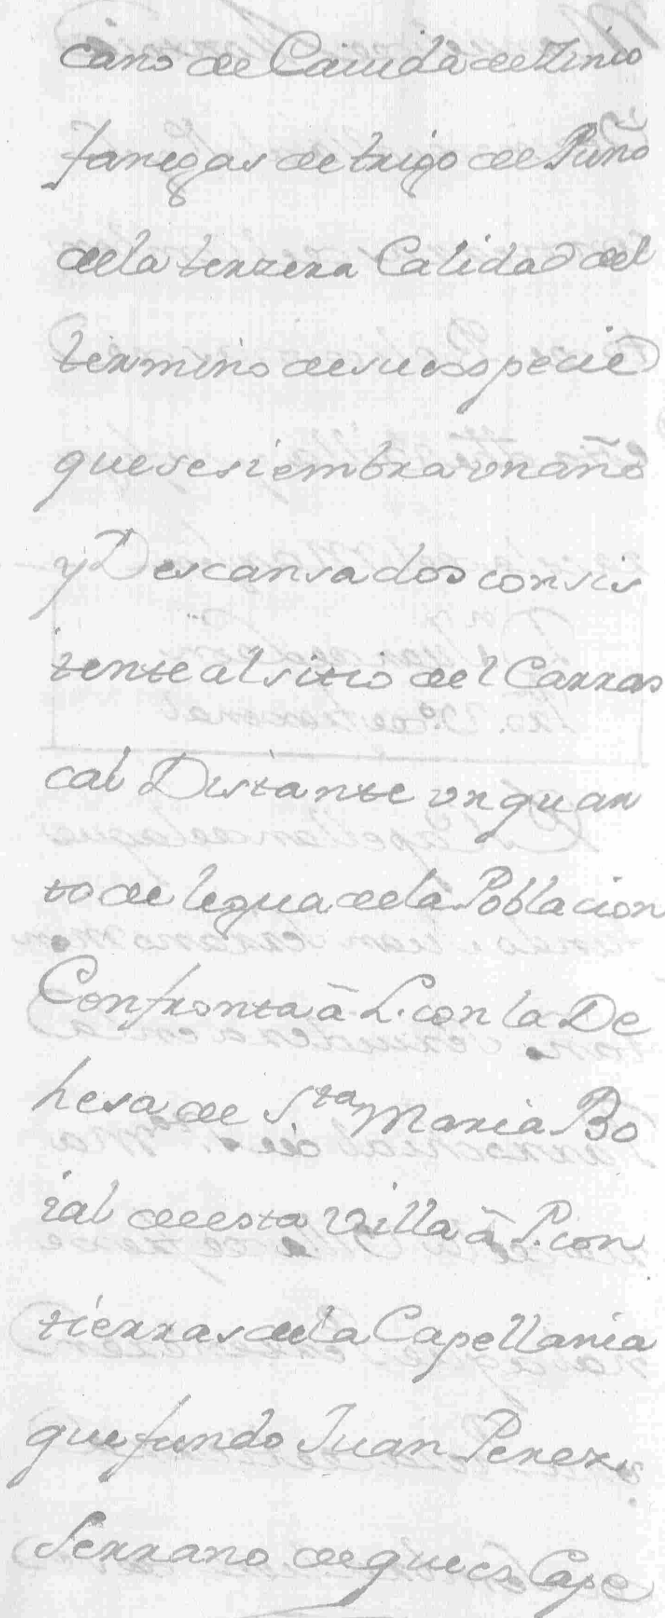 cano de Cauida de Zinco
fanegas de trigo de Puño
de la terzera Calidad del
termino de su especie
que se siembra vn año
y Descansa dos consis
tente al sitio del Carras
cal Distante vn quar
to de legua de la Poblacion
Confronta â L. con la De
hesa de Sta Maria Bo
ial de esta Villa â P. con
tierras de la Capellania
que fundo Juan Perez
Serrano de que es Cape